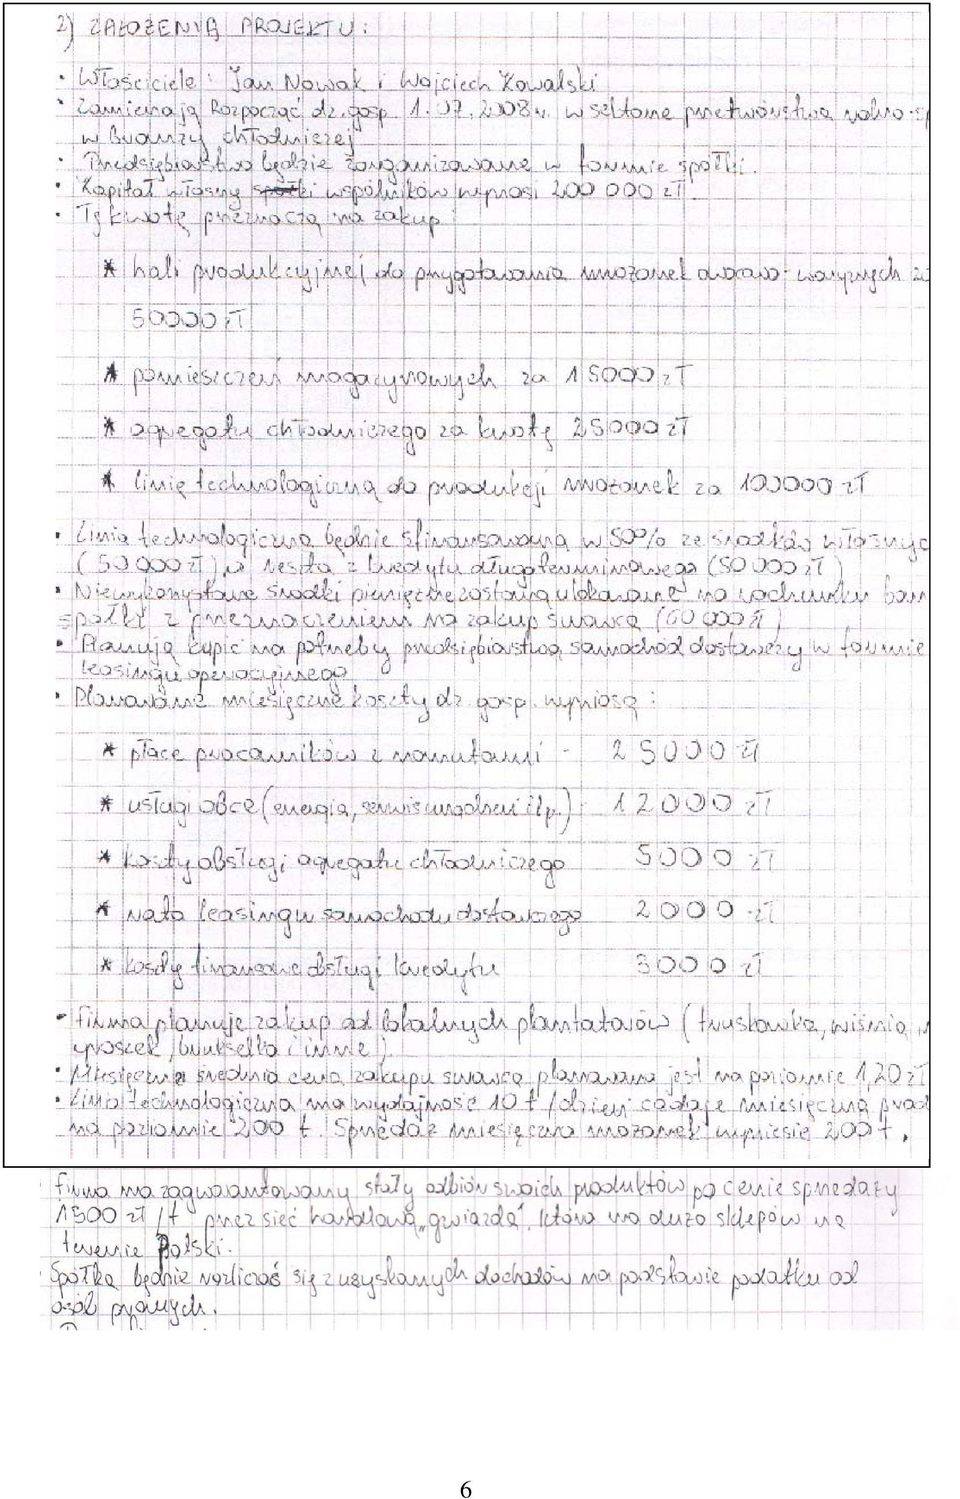 2) ZAŁOŻENIA PROJEKTU:
• Właściciele: Jan Nowak i Wojciech Kowalski
• Zamierzają rozpocząć dz. gosp. 1.07.2008r. w sektorze przetwórstwa rolno-sp
w branży chłodniczej
• Przedsiębiorstwo będzie zorganizowane w formie spółki.
• Kapitał własny wspólników wynosi 200 000 zł.
• Tę kwotę przeznaczą na zakup:
* hali produkcyjnej do przygotowania mrożonek owocowo-warzywnych za
50000 zł
* pomieszczeń magazynowych za 15000 zł
* agregatu chłodniczego za kwotę 25000 zł
* linię technologiczną do produkcji mrożonek za 100000 zł
• Linia technologiczna będzie sfinansowana w 50% ze środków własnyc
(50 000 zł), a reszta z kredytu długoterminowego (50 000 zł)
• Niewykorzystane środki pieniężne zostaną ulokowane na rachunku ban
spółki z przeznaczeniem na zakup surowca (60 000 zł)
• Planują kupić na potrzeby przedsiębiorstwa, samochód dostawczy w formie
leasingu operacyjnego
• Planowane miesięczne koszty dz. gosp. wyniosą:
* płace pracowników z narzutami - 25000 zł
* usługi obce (energia, serwis urządzeń itp.) - 12000 zł
* koszty obsługi agregatu chłodniczego 5000 zł
* rata leasingu samochodu dostawczego 2000 zł
* koszty finansowe obsługi kredytu 3000 zł
• firma planuje zakup od lokalnych plantatorów (truskawka, wiśnia,
groszek, brukselka i inne).
• Miesięczna średnia cena zakupu surowca planowana jest na poziomie 1,20 zł
• Linia technologiczna ma wydajność 10 t/dzień co daje miesięczną prod
na poziomie 200 t. Sprzedaż miesięczna mrożonek wyniesie 200 t.
firma ma zagwarantowany stały odbiór swoich produktów po cenie sprzedaży
1500 zł/t przez sieć handlową „gwiazda", która ma dużo sklepów na
terenie Polski.
Spółka będzie rozliczać się z uzyskanych dochodów na podstawie podatku od
osób prawnych.
6